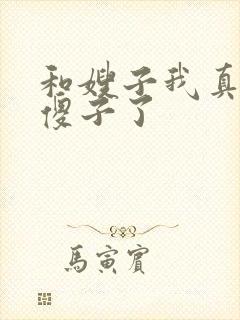 和嫂子我真
傻子了
馬寅賓